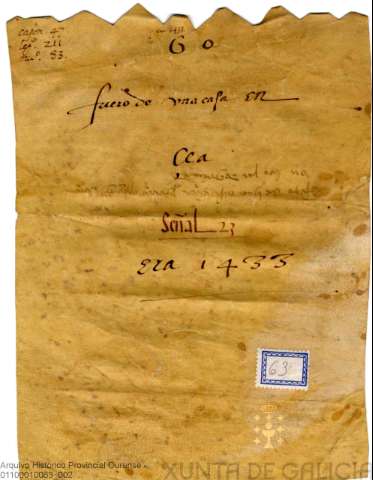 caxon 47
leg. 211
nu.º 83.
60
fuero do una casa en
Cea
Señal 23
era 1433
63
Arquivo Histórico Provincial Ourense -
01100010063_002
XUNTA DE GALICIA